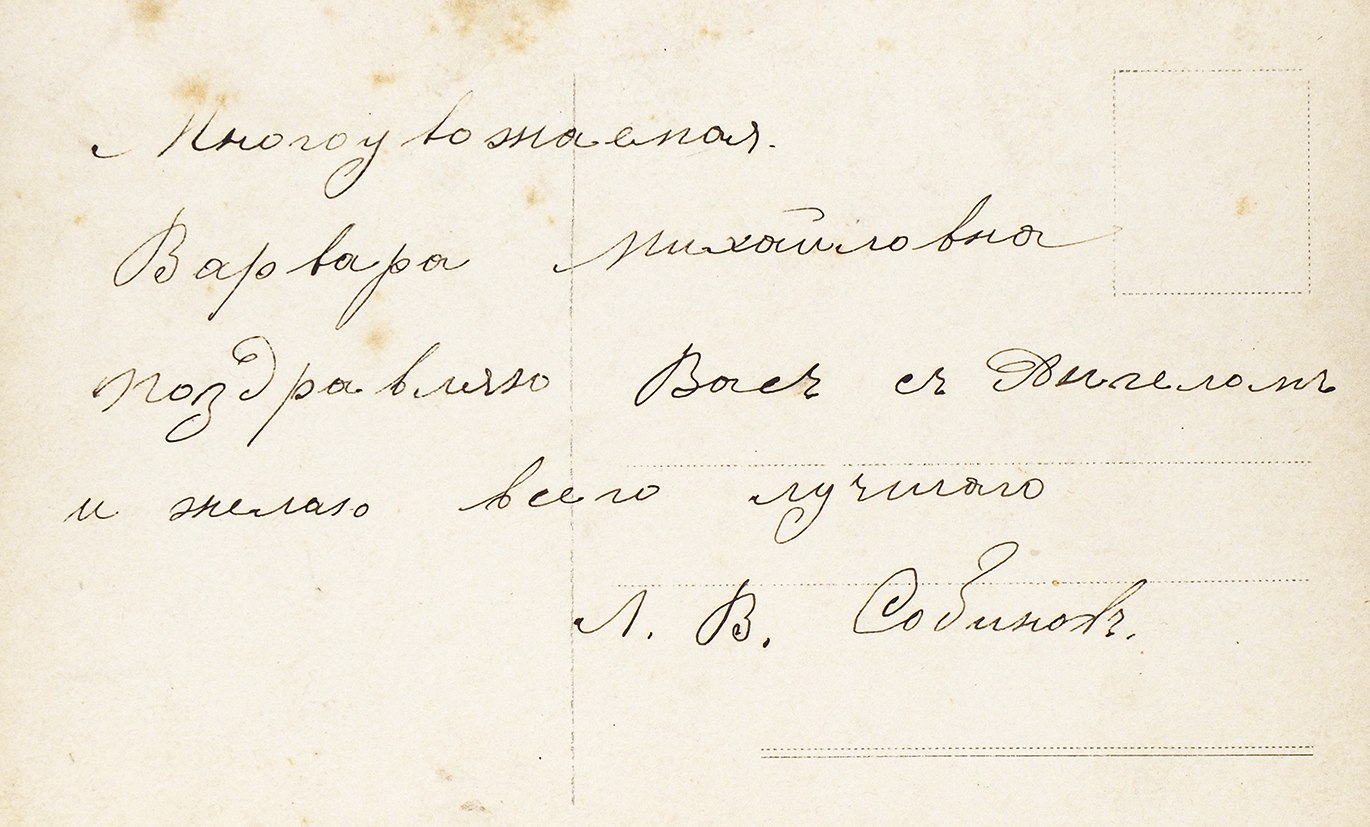 Многоуважаемая.
Варвара Михайловна
поздравляю Васъ съ Ангеломъ
и желаю всего лучшаго
Л. В. Собиновъ.